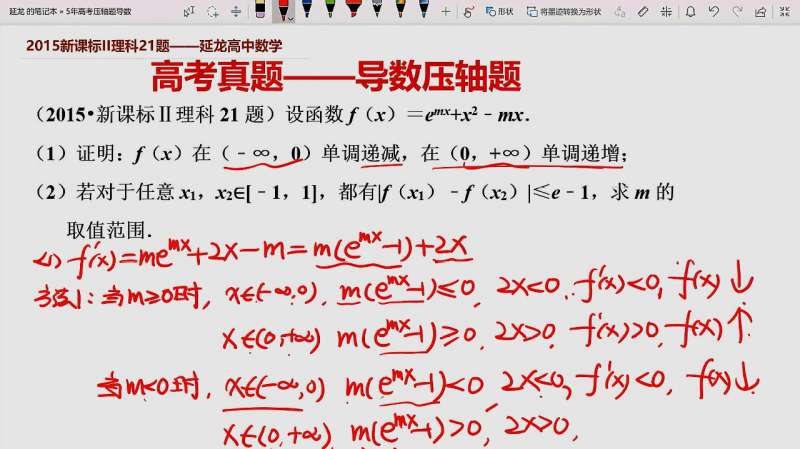 延龙 的笔记本 » 5年高考压轴题导数
形状 将墨迹转换为形状
2015新课标II理科21题——延龙高中数学
高考真题——导数压轴题
（2015•新课标Ⅱ理科 21 题）设函数 f（x）＝eᵐˣ+x²﹣mx．
（1）证明：f（x）在（﹣∞，0）单调递减，在（0，+∞）单调递增；
（2）若对于任意 x₁，x₂∈[﹣1，1]，都有|f（x₁）﹣f（x₂）|≤e﹣1，求 m 的
取值范围．
(1) f'(x)=meᵐˣ+2x-m=m(eᵐˣ-1)+2x
方法1：当m≥0时，x∈(-∞,0)，m(eᵐˣ-1)≤0，2x<0，f'(x)<0，f(x)↓
x∈(0,+∞) m(eᵐˣ-1)≥0，2x>0，f'(x)>0，f(x)↑
当m<0时，x∈(-∞,0) m(eᵐˣ-1)<0，2x<0，f'(x)<0，f(x)↓
x∈(0,+∞)，m(eᵐˣ-1)>0，2x>0，